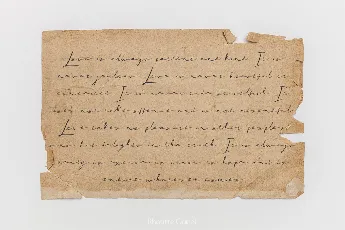 Love is always patient and kind. It is
never jealous. Love is never boastful or
conceited. It is never rude or selfish. It
does not take offence and is not resentful.
Love takes no pleasure in other people's
sins but delights in the truth. It is always
ready to excuse, to trust, to hope and to
endure whatever comes.